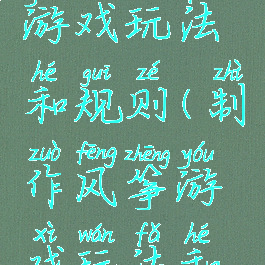 游戏玩法
hé guī zé zhì
和规则(制
zuò fēng zhēng yóu
作风筝游
xì wán fǎ hé
戏玩法和